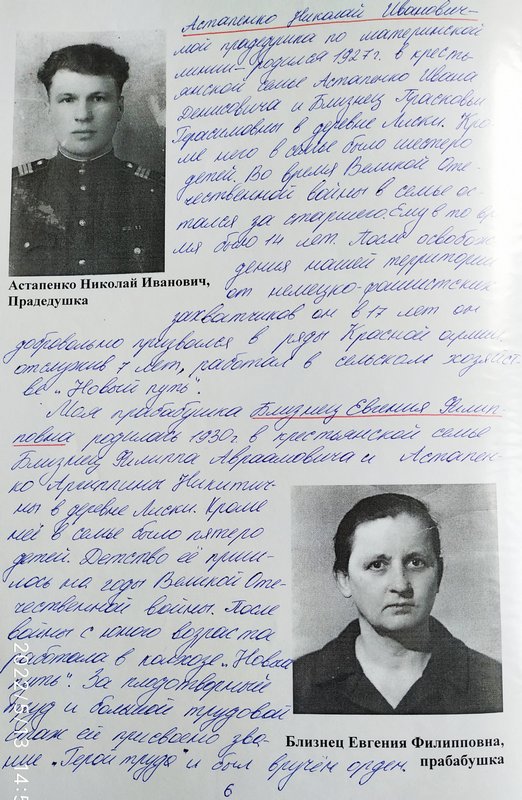 Астапенко Николай Иванович-
мой прадедушка по материнской
линии- родился 1927г. в кресть
янской семье Астапенко Ивана
Денисовича и Близнец Прасковьи
Герасимовны в деревне Лиски. Кро
ме него в семье было шестеро
детей. Во время Великой Оте-
чественной войны в семье ос-
тался за старшего. Ему в то вре
мя было 14 лет. После освобож
дения нашей территории
от немецко-фашистских
захватчиков он в 17 лет он
добровольно призвался в ряды Красной армии.
отслужив 7 лет, работал в сельском хозяйст-
ве „Новый путь".
Астапенко Николай Иванович,
Прадедушка
Моя прабабушка Близнец Евгения Филип-
повна родилась 1930г в крестьянской семье
Близнец Филиппа Авраамовича и Астапен-
ко Агриппины Никитич-
ны в деревне Лиски. Кроме
неё в семье было пятеро
детей. Детство её приш-
лось на годы Великой Оте-
чественной войны. После
войны с юного возраста
работала в колхозе „Новый
путь". За плодотворный
труд и большой трудовой
стаж ей присвоено зва-
ние „Герой труда" и был вручён орден.
Близнец Евгения Филипповна,
прабабушка
6